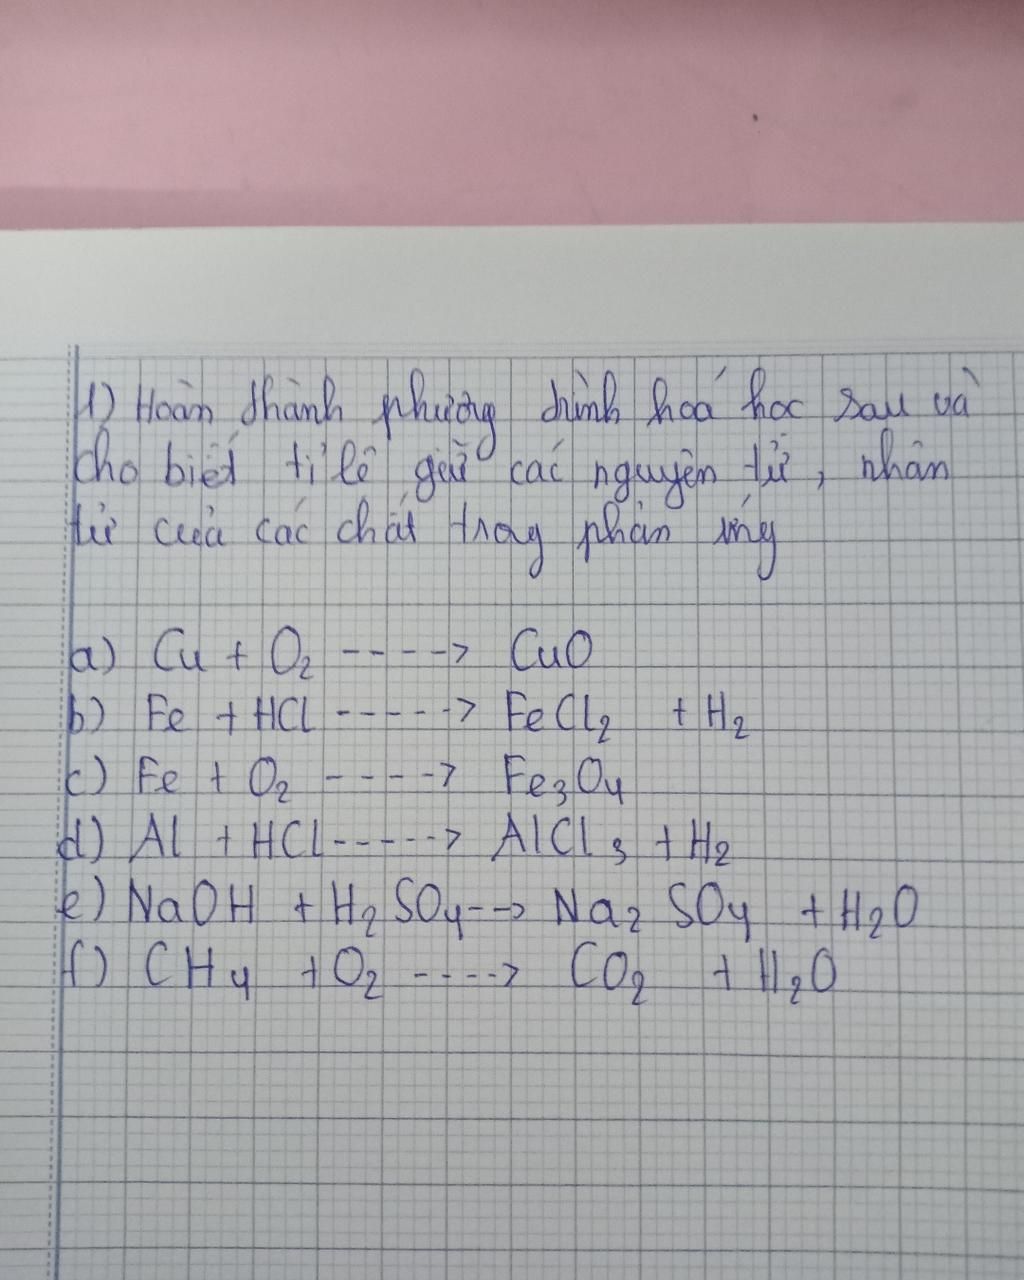 1) Hoàn thành phương trình hoá học sau và
cho biết tỉ lệ giữ các nguyên tử, nhân
tử của các chất trong phản ứng
a) Cu + O₂ ----> CuO
b) Fe + HCl -----> FeCl₂ + H₂
c) Fe + O₂ ----> Fe₃O₄
d) Al + HCl -----> AlCl₃ + H₂
e) NaOH + H₂SO₄ --> Na₂SO₄ + H₂O
f) CH₄ + O₂ ----> CO₂ + H₂O